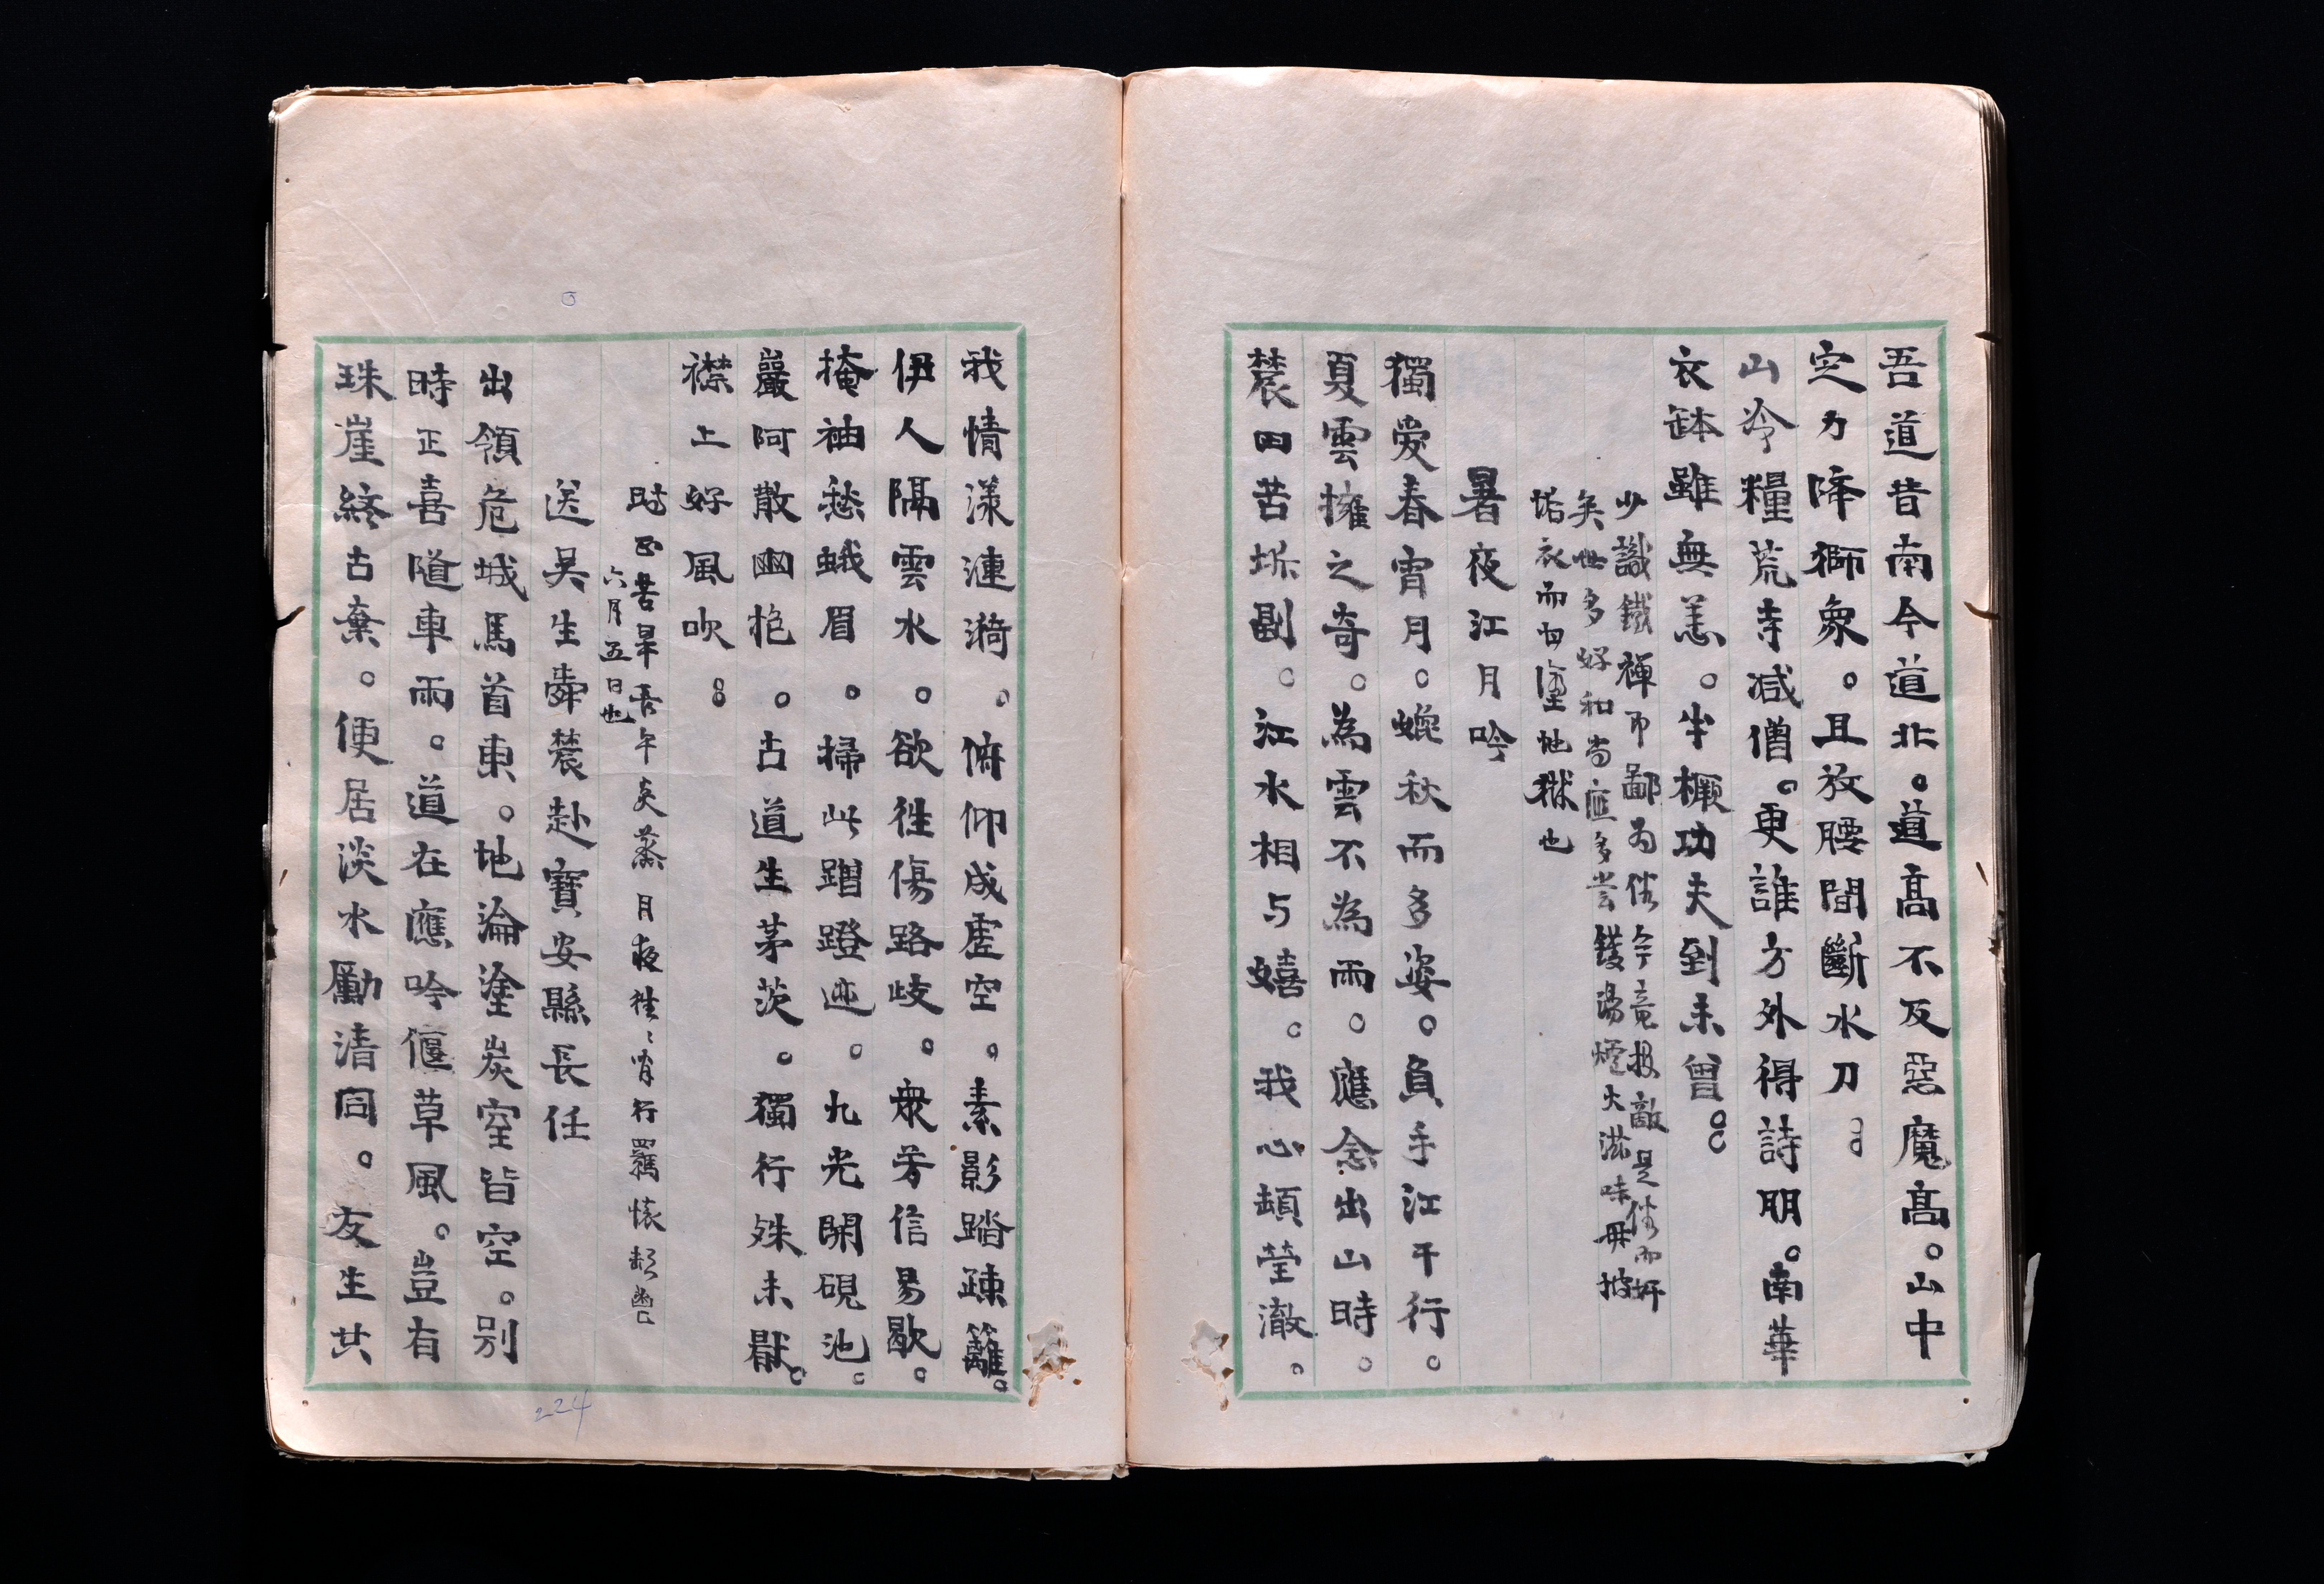 吾道昔南今道北。道高不及惡魔高。山中
定力降獅象。且放腰間斷水刀。
山冷糧荒寺減僧。更誰方外得詩朋。南華
衣鉢雖無恙。半橛功夫到未曾。
少識鐵禪而鄙為俗今竟投敵是俗而奸
矣世多好和尚應多嘗鑊湯爐火滋味毋披
袈衣而甘墮地獄也
暑夜江月吟
獨愛春宵月。蟾秋而多姿。負手江干行。
夏雲擁之奇。為雲不為雨。應念出山時。
農田苦坼副。江水相与嬉。我心頓瑩澈。
我情漾漣漪。俯仰成虛空。素影踏疎籬。
伊人隔雲水。欲往傷路歧。衆芳信易歇。
掩袖愁蛾眉。掃此蹭蹬迹。九光開硯池。
巖阿散幽抱。古道生茅茨。獨行殊未厭。
襟上好風吹。
時正苦旱吾午炎蒸月夜往〻宵行羈懷
六月五日也
送吳生舜農赴寶安縣長任
出領危城馬首東。地淪塗炭室皆空。別
時正喜隨車雨。道在應吟偃草風。豈有
珠崖終古棄。便居淡水勵清同。友生共
224